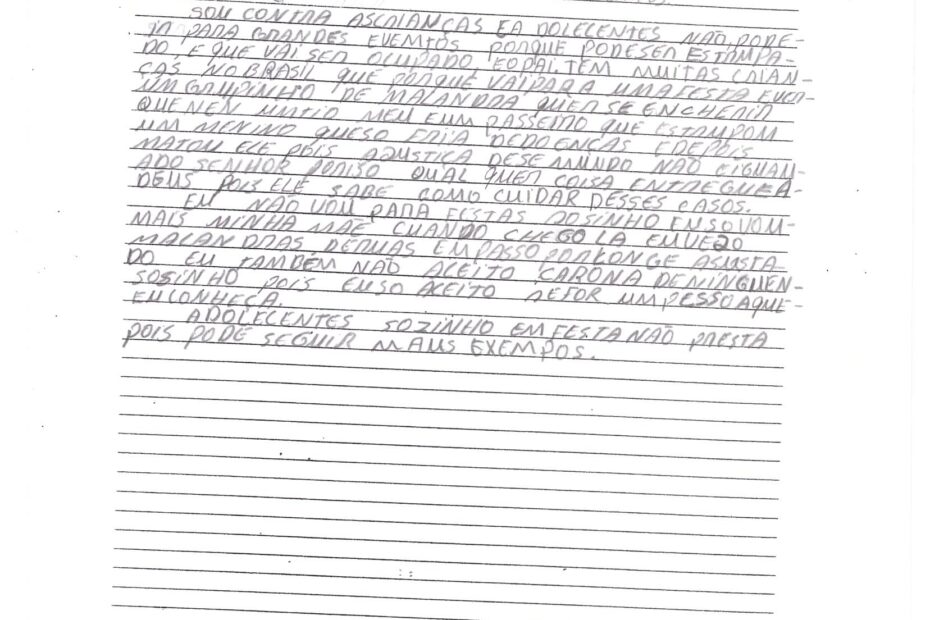 SOU CONTRA ASCRIANÇAS EA DOLECENTES NÃO PODE-
IR PARA GRANDES EVEMTOS PORQUE PODESER ESTAMPA-
DO, E QUE VAI SER OCUPADO, EOPAI. TEM MUITAS CRIAN-
ÇAS NO BRASIL QUE PORQUE VAIPARA UMA FESTA EVEN-
UM GRUPINHO DE MALANDRA QUER SE ENCHERIR
QUE NEN UMTIO MEU EUM PASSEIRO QUE ESTAMPOM
UM MENINO QUESO DEDOENCAS EDEPOIS
MATOU ELE POIS AJUSTICA DESE MUNDO NÃO EIGUAU-
ADO SENHOR PORISO QUAL QUER COISA ENTREGUE A-
DEUS POIS ELE SABE COMO CUIDAR DESSES CASOS.
EU NÃO VOU PARA FESTAS SOSINHO EUSOVOU-
MAIS MINHA MÃE CUANDO CHEGO LA EUVEJO
MALANDRAS DEMAS EMPASSO PORLONGE ASUSTA
DO EU TAMBÉM NÃO ACEITO CARONA DENINGUEN-
SOSINHO POIS EUSO ACEITO SEFOR UMPESSOAQUE-
EUCONHEÇA.
ADOLECENTES SOZINHO EM FESTA NÃO PRESTA
POIS PODE SEGUIR MAUS EXEMPOS.